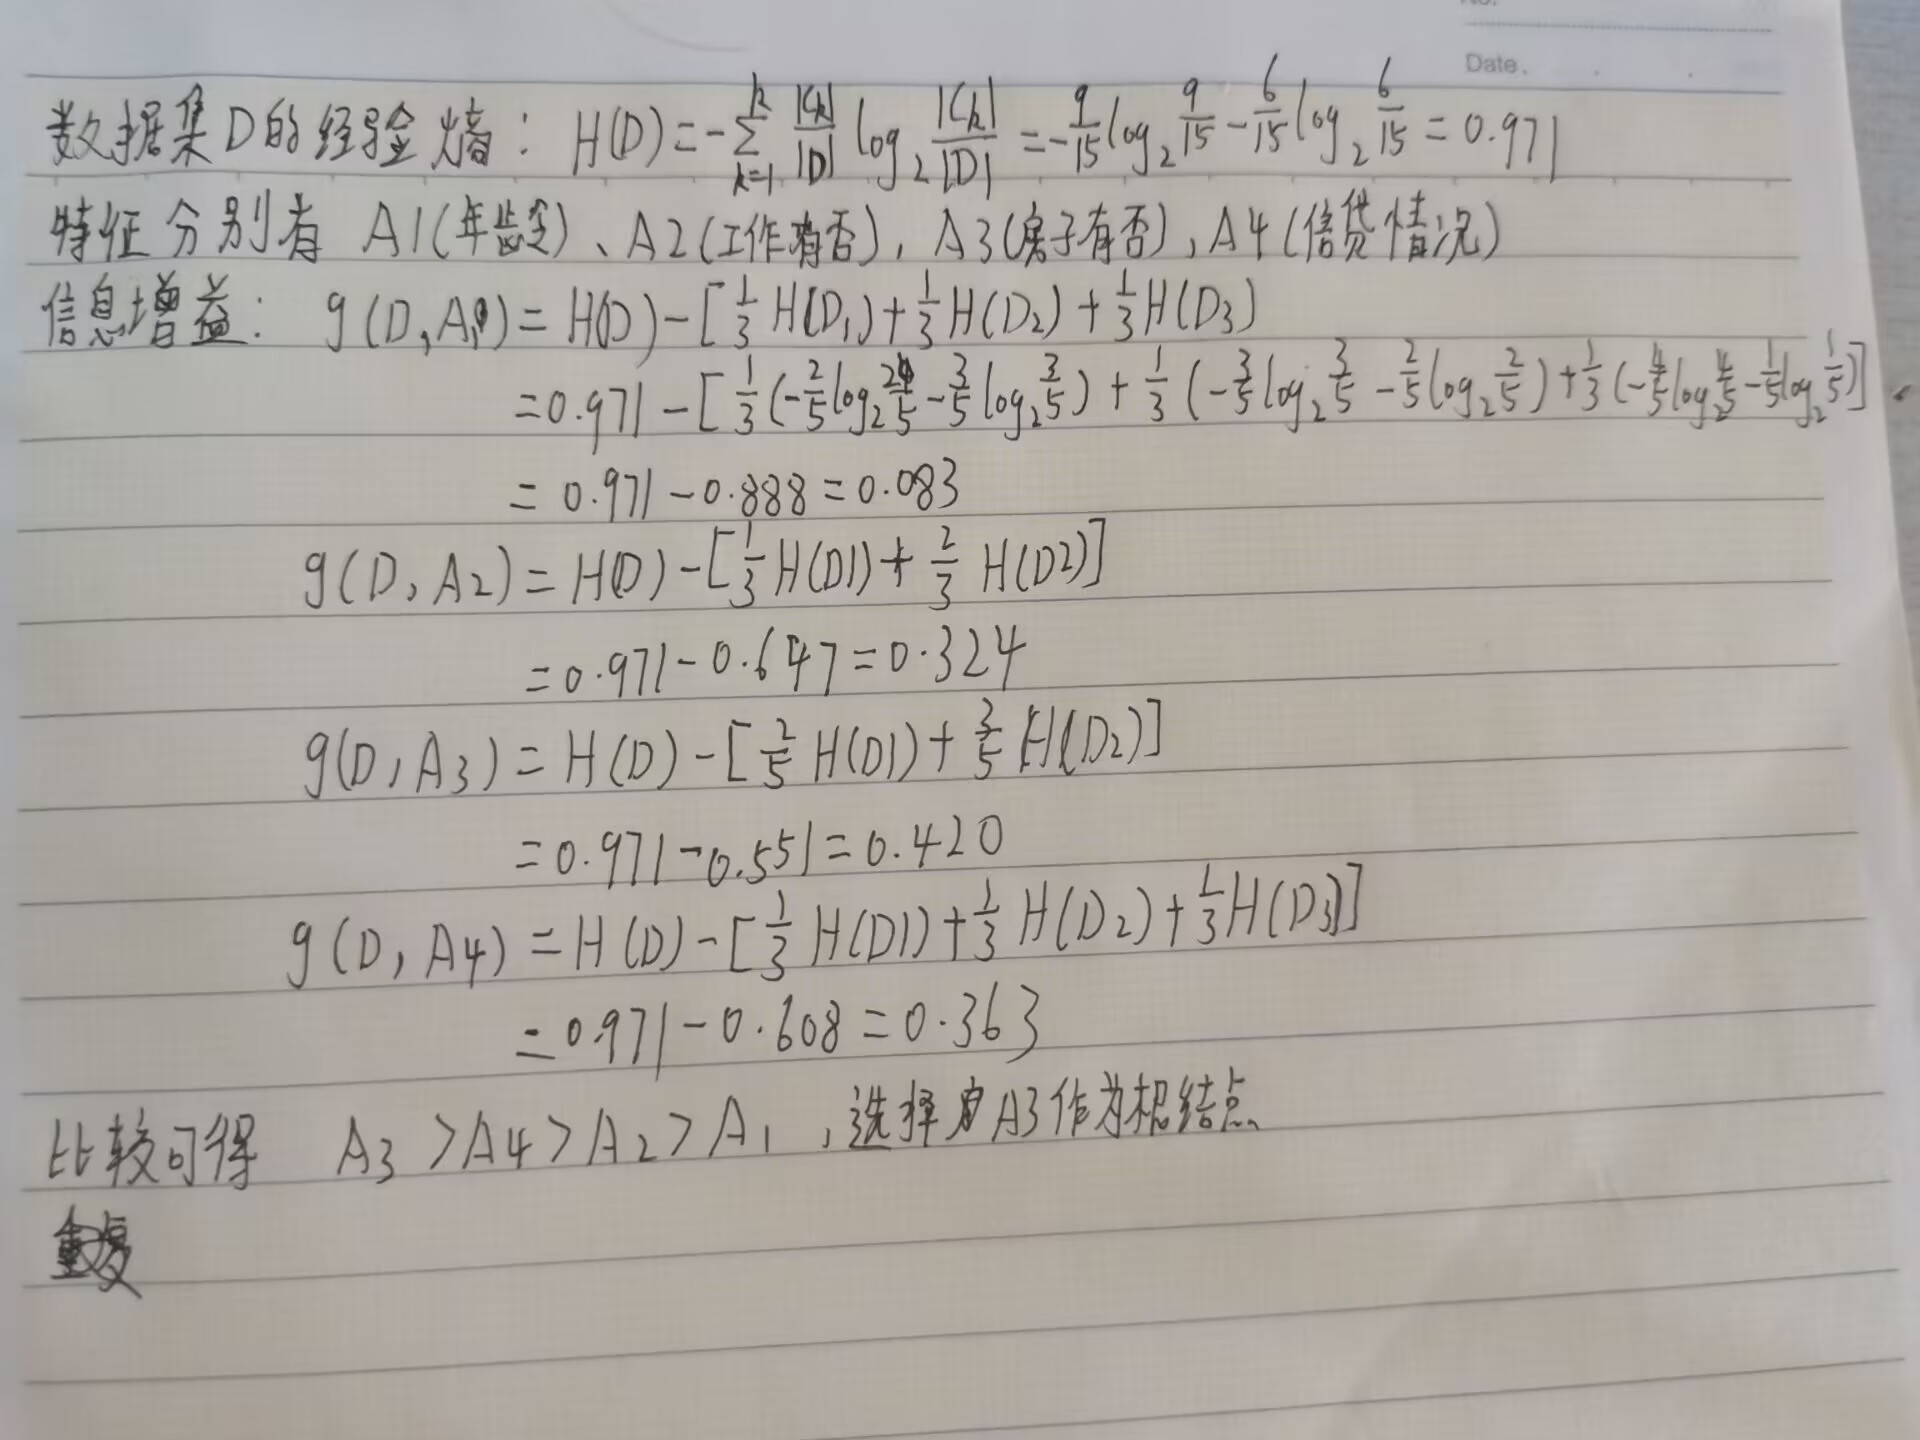 No.
Date.
数据集D的经验熵: H(D)=-∑_{k=1}^{k} |Ck|/|D| log₂ |Ck|/|D| = -9/15 log₂ 9/15 - 6/15 log₂ 6/15 = 0.971
特征分别有 A1(年龄)、A2(工作有否), A3(房子有否), A4(信贷情况)
信息增益: g(D,A1) = H(D) - [1/3 H(D₁) + 1/3 H(D₂) + 1/3 H(D₃)
=0.971 - [1/3 (-2/5 log₂ 2/5 - 3/5 log₂ 3/5) + 1/3 (-3/5 log₂ 3/5 - 2/5 log₂ 2/5) + 1/3 (-4/5 log₂ 4/5 - 1/5 log₂ 1/5)]
= 0.971 - 0.888 = 0.083
g(D, A2) = H(D) - [1/3 H(D1) + 2/3 H(D2)]
= 0.971 - 0.647 = 0.324
g(D, A3) = H(D) - [2/5 H(D1) + 3/5 H(D2)]
= 0.971 - 0.551 = 0.420
g(D, A4) = H(D) - [1/3 H(D1) + 1/3 H(D2) + 1/3 H(D3)]
= 0.971 - 0.608 = 0.363
比较可得 A3 > A4 > A2 > A1 ,选择 A3作为根结点